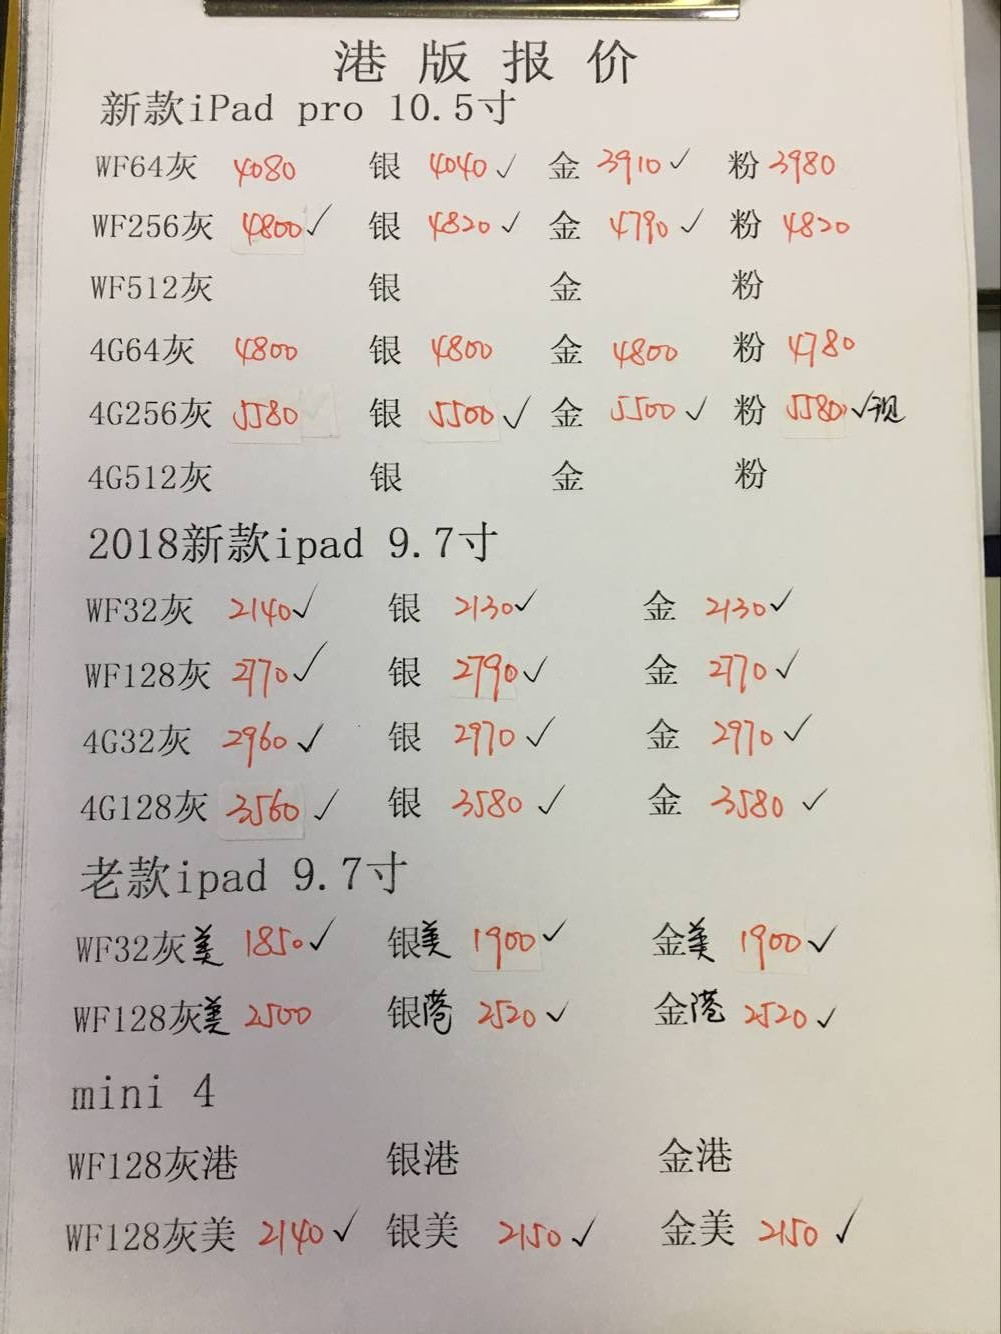 港版报价
新款iPad pro 10.5寸
WF64灰 4080 银 4040 ✓ 金 3910 ✓ 粉 3980
WF256灰 4800 ✓ 银 4820 ✓ 金 4790 ✓ 粉 4820
WF512灰 银 金 粉
4G64灰 4800 银 4800 金 4800 粉 4780
4G256灰 5580 银 5500 ✓ 金 5500 ✓ 粉 5580 ✓现
4G512灰 银 金 粉
2018新款ipad 9.7寸
WF32灰 2140 ✓ 银 2130 ✓ 金 2130 ✓
WF128灰 2770 ✓ 银 2790 ✓ 金 2770 ✓
4G32灰 2960 ✓ 银 2970 ✓ 金 2970 ✓
4G128灰 3560 ✓ 银 3580 ✓ 金 3580 ✓
老款ipad 9.7寸
WF32灰美 1850 ✓ 银美 1900 ✓ 金美 1900 ✓
WF128灰美 2500 银港 2520 ✓ 金港 2520 ✓
mini 4
WF128灰港 银港 金港
WF128灰美 2140 ✓ 银美 2150 ✓ 金美 2150 ✓